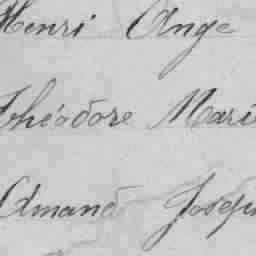 Henri Ange
Théodore Marie
Amand Joseph